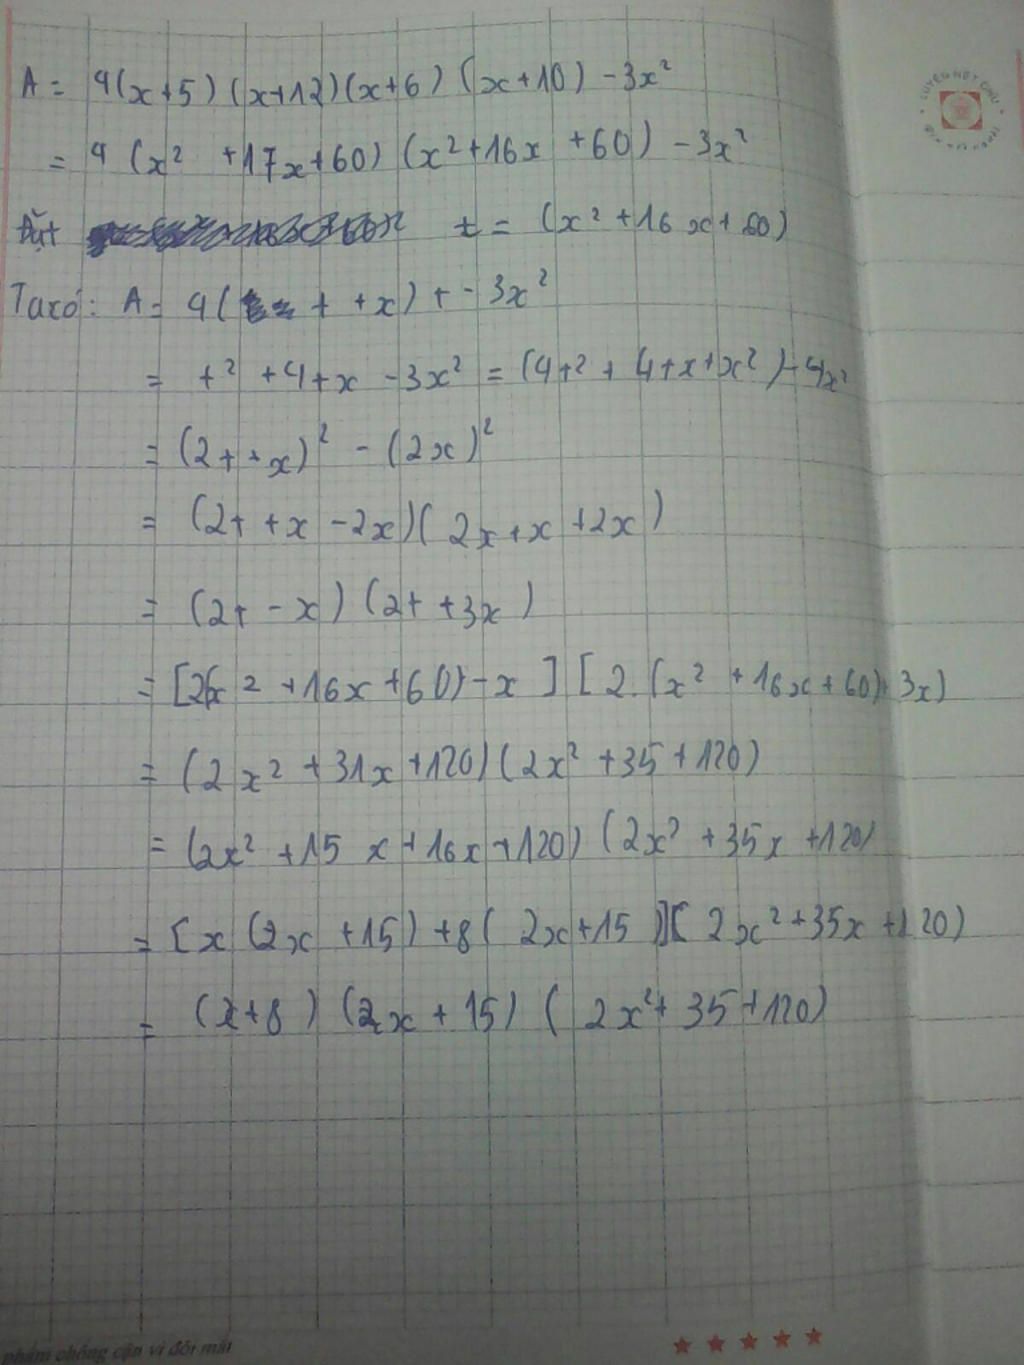 A = 4(x+5)(x+12)(x+6)(x+10) - 3x²
= 4(x² + 17x + 60)(x² + 16x + 60) - 3x²
Đặt t = (x² + 16x + 60)
Ta có: A = 4(t + x)t - 3x²
= t² + 4tx - 3x² = (4t² + 4tx + x²) - 4x²
= (2t + x)² - (2x)²
= (2t + x - 2x)(2x + x + 2x)
= (2t - x)(2t + 3x)
= [2(x² + 16x + 60) - x][2.(x² + 16x + 60) + 3x)
= (2x² + 31x + 120)(2x² + 35 + 120)
= (2x² + 15x + 16x + 120)(2x² + 35x + 120)
= [x(2x + 15) + 8(2x + 15)][2x² + 35x + 120)
= (x + 8)(2x + 15)(2x² + 35 + 120)
LUYỆN NÉT CHỮ
phẩm chống cận vì đôi mắt